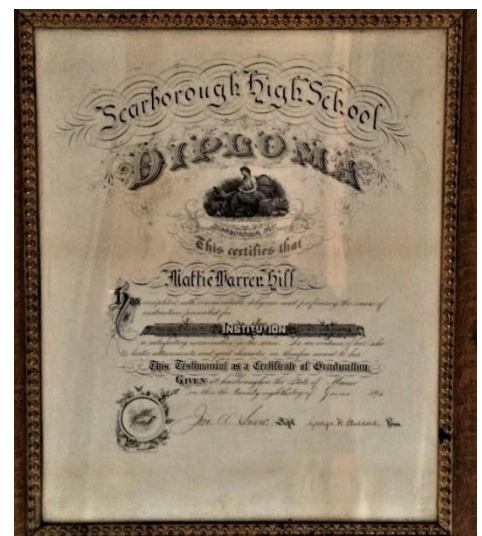 Scarborough High School
DIPLOMA
SCARBOROUGH, ME.
This certifies that
Mattie Warren Hill
Has completed with commendable diligence and proficiency the course of
instruction prescribed for
INSTITUTION
a satisfactory examination in the same. As an evidence of her
attainments and good character we therefore award to her
This Testimonial as a Certificate of Graduation
GIVEN at Scarborough in the State of Maine
on this the twenty eighth day of June
Supt. George H.